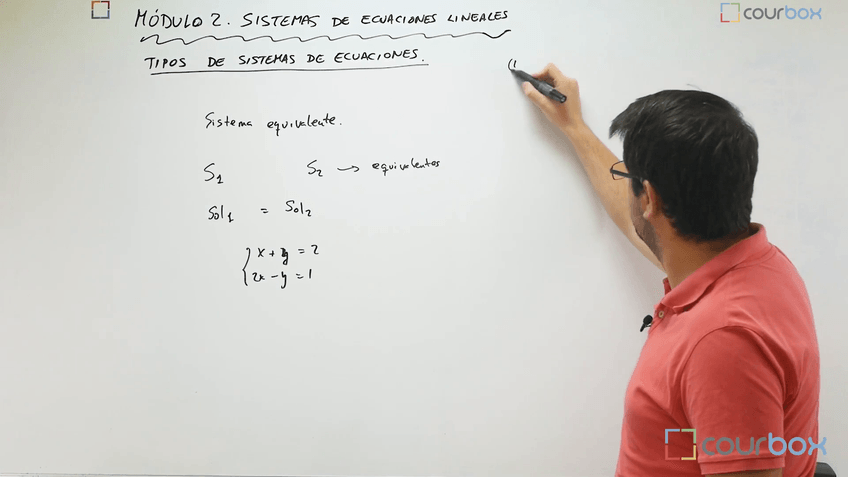 MÓDULO 2. SISTEMAS DE ECUACIONES LINEALES
courbox
TIPOS DE SISTEMAS DE ECUACIONES.
(1
Sistema equivalente.
S1 S2 → equivalentes
Sol1 = Sol2
x + y = 2
2x - y = 1
courbox